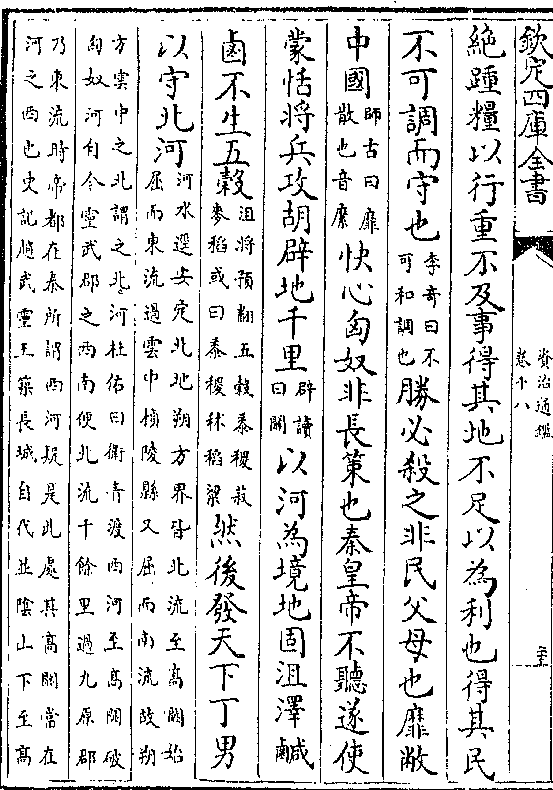 欽定四庫全書
資治通鑑
卷十八
絶踵糧以行重不及事得其地不足以為利也得其民
不可調而守也李奇曰不可和調也勝必殺之非民父母也靡敝
中國師古曰靡散也音縻快心匈奴非長策也秦皇帝不聽遂使
蒙恬將兵攻胡辟地千里辟讀曰闢以河為境地固沮澤鹹
鹵不生五穀沮將預翻五穀黍稷菽麥稻或曰黍稷秫稻粱然後發天下丁男
以守北河河水逕安定北地朔方界皆北流至高闕始屈而東流過雲中楨陵縣又屈而南流故朔
方雲中之北謂之北河杜佑曰衛青渡西河至高闕破匈奴河自今靈武郡之西南便北流千餘里過九原郡
乃東流時帝都在秦所謂西河疑是此處其高闕當在河之西也史記趙武靈王築長城自代並陰山下至高